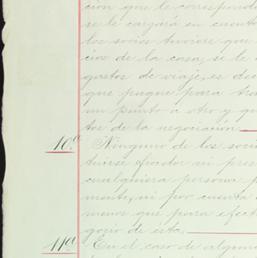 ción que le correspond
se le cargará en cuenta
los socios tuviere que
cios de la casa, se le
gastos de viaje, es dec
que pague para tras
un punto a otro y ga
tos de la negociación.
10ª Ninguno de los soci
tuirse fiador ni pres
cualquiera persona p
mente, ni por cuenta
menos que para efect
gocio de esta.
11ª En el caso de alguno